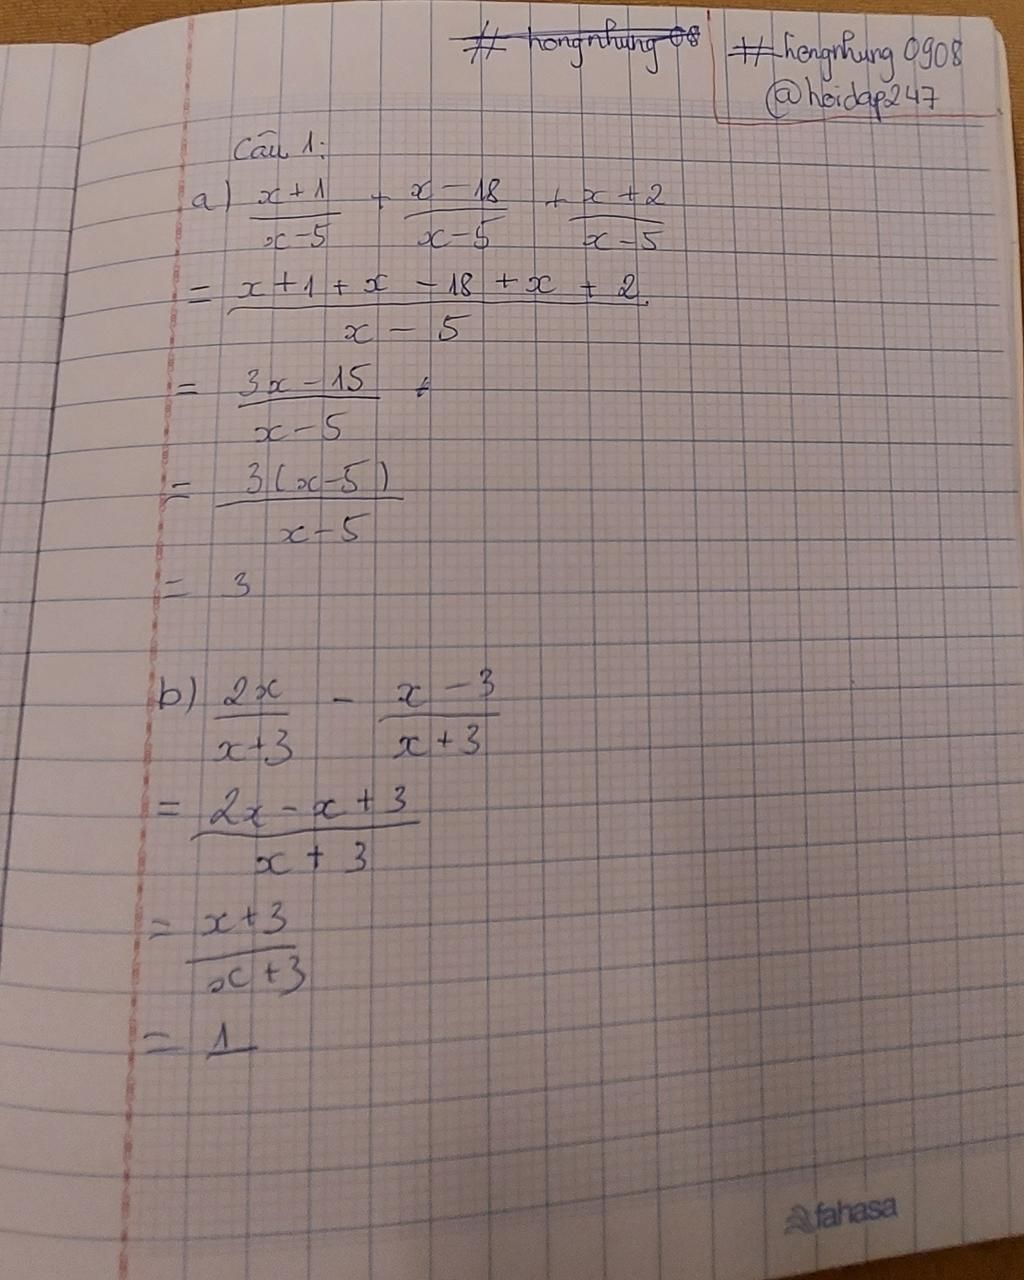 # hongnhung 08
# hongnhung 0908
@hoidap247
Câu 1:
a) \frac{x+1}{x-5} + \frac{x-18}{x-5} + \frac{x+2}{x-5}
= \frac{x+1+x-18+x+2}{x-5}
= \frac{3x-15}{x-5}
= \frac{3(x-5)}{x-5}
= 3
b) \frac{2x}{x+3} - \frac{x-3}{x+3}
= \frac{2x-x+3}{x+3}
= \frac{x+3}{x+3}
= 1
fahasa